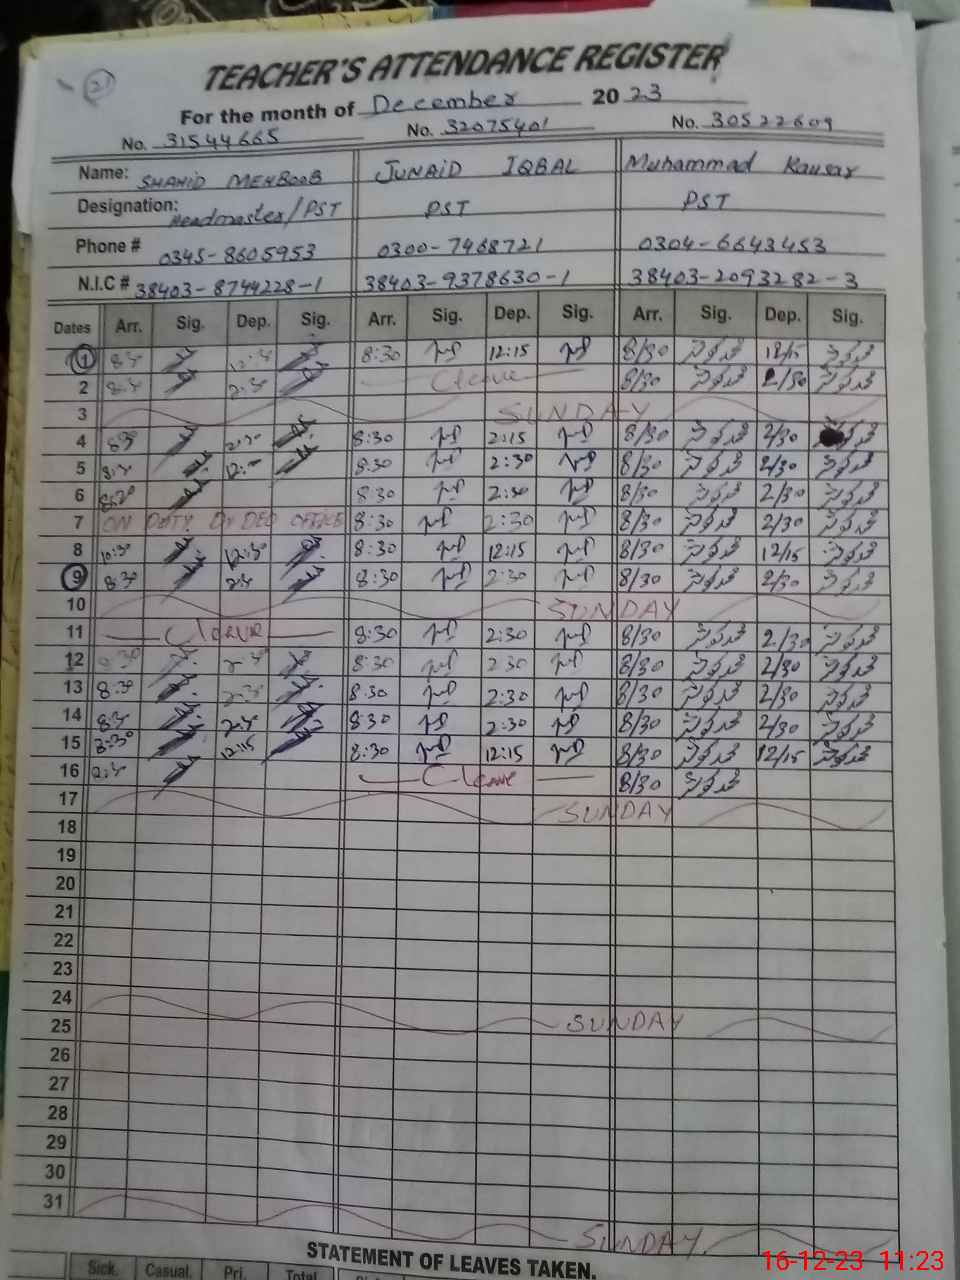 2
TEACHER'S ATTENDANCE REGISTER
For the month of December 2023
No. 31544665 No. 32075401 No. 30522609
Name: SHAHID MEHBOOB JUNAID IQBAL Muhammad Kausar
Designation: Headmaster/PST PST PST
Phone # 0345-8605953 0300-7468721 0304-6643453
N.I.C # 38403-8744228-1 38403-9378630-1 38403-2093282-3
Dates Arr. Sig. Dep. Sig. Arr. Sig. Dep. Sig. Arr. Sig. Dep. Sig.
1 8:30 12:15 8/30 12/15
2 Cleave 8/30 2/30
3 SUNDAY
4 8:30 2:15 8/30 2/30
5 8:30 2:30 8/30 2/30
6 8:30 2:30 8/30 2/30
7 ON DUTY DY DEO OFFICE 8:30 2:30 8/30 2/30
8 10:30 12:30 8:30 12:15 8/30 12/15
9 8:30 8:30 2:30 8/30 2/30
10 SUNDAY
11 Cleave 8:30 2:30 8/30 2/30
12 8:30 8:30 2:30 8/30 2/30
13 8:30 2:30 8:30 2:30 8/30 2/30
14 8:30 2:30 8/30 2/30
15 8:30 12:15 8:30 12:15 8/30 12/15
16 Cleave 8/30
17 SUNDAY
18
19
20
21
22
23
24
25 SUNDAY
26
27
28
29
30
31 SUNDAY
STATEMENT OF LEAVES TAKEN.
Sick. Casual. Pri. Total
16-12-23 11:23